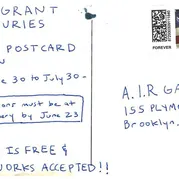 GRANT
URIES
POSTCARD
ne 30 to July 30-
ons must be at
ery by June 23
IS FREE &
WORKS ACCEPTED!!
FOREVER
A.I.R GA
155 PLYM
Brooklyn.